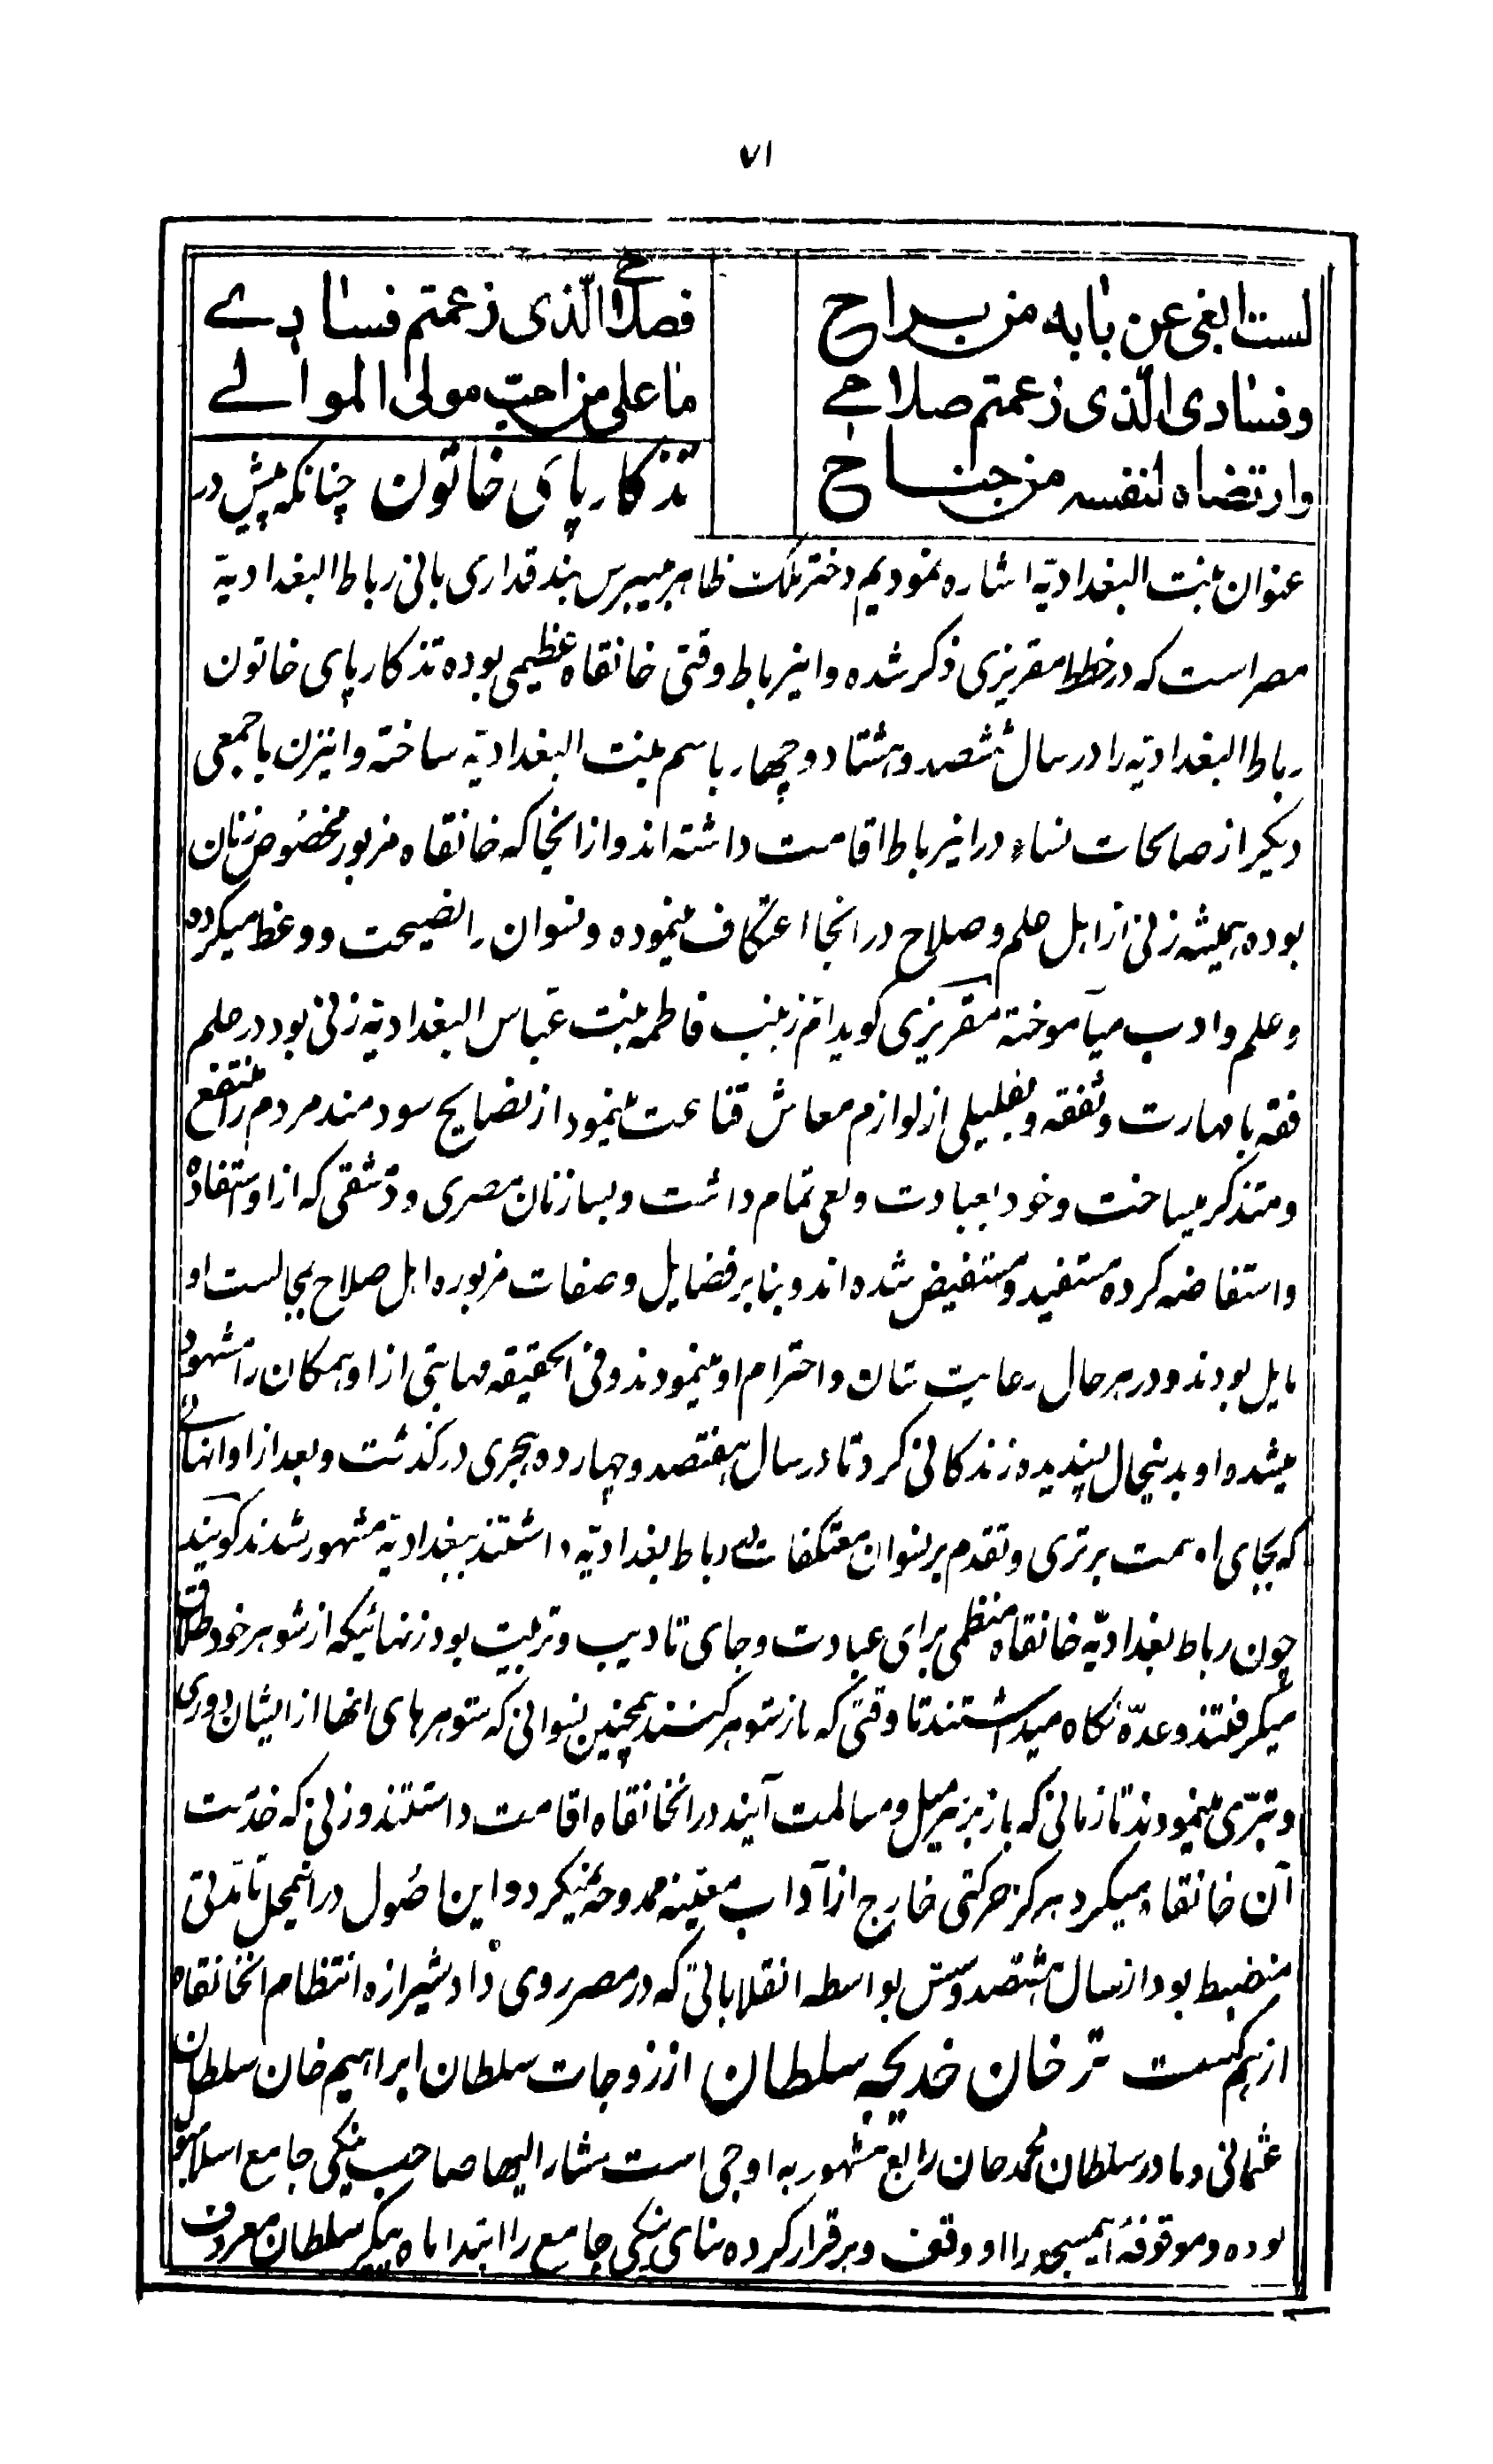 ۷۱
لست ابغی عن بابه من براح
فصلاحی الّذی زعمتم فسادے
و فسادی الّذی زعمتم صلاحے
ما علی من احبّ مولی الموالے
وارتضاه لنفسه من جناح
تذکار پای خاتون چنانکه پیش در
عنوان بنت البغدادیّه اشاره نمودیم دختر ملک ظاهر بیبرس بندقداری بانی رباط البغدادیّة
مصر است که در خطط مقریزی ذکر شده و اینرباط وقتی خانقاه عظیمی بوده تذکار پای خاتون
رباط البغدادیّه را در سال ششصد و هشتاد و چهار باسم بنت البغدادیّه ساخته و اینزن با جمعی
دیکر از صالحات نساء در اینرباط اقامت داشته اند و از انجا که خانقاه مزبور مخصوص زنان
بوده همیشه زنی از اهل علم و صلاح در انجا اعتکاف مینموده و نسوان را نصیحت و وعظ میکرده
و علم و ادب میآموخته مقریزی کوید امّ زینب فاطمه بنت عبّاس البغدادیّه زنی بود در علم
فقه با مهارت و تفقه و بقلیلی از لوازم معاش قناعت مینمود از نصایح سودمند مردم را منتفع
و متذکر میساخت و خود بعبادت ولعی تمام داشت و بسا زنان مصری و دمشقی که از او استفاده
و استفاضه کرده مستفید و مستفیض شده اند و بنا بر فضایل و صفات مزبوره اهل صلاح بمجالست او
مایل بودند و در هر حال رعایت شان و احترام او مینمودند و فی الحقیقه مهابتی از او همکان را مشهود
میشد و او بدینحال پسندیده زندکانی کرد تا در سال هفتصد و چهارده هجری درکذشت و بعد از او انهائی
که بجای او سمت برتری و تقدم بر نسوان معتکفات رباط بغدادیّه داشتند ببغدادیّه مشهور شدند کویند
چون رباط بغدادیّه خانقاه منظمی برای عبادت و جای تادیب و تربیت بود زنهائیکه از شوهر خود طلاق
میکرفتند و عدّه نکاه میداشتند تا وقتی که باز شوهر کنند همچنین نسوانی که شوهرهای انها از ایشان دوری
و تبرّی مینمودند تا زمانی که باز بر سر میل و مسالمت آیند در انخانقاه اقامت داشتند و زنی که خدمت
آن خانقاه میکرد هرکز حرکتی خارج از آداب معیّنه ممدوحه نمیکرد و این اصول در انمحل تا مدّتی
منضبط بود از سال هشتصد و شش بواسطه انقلاباتی که در مصر روی داد شیرازه انتظام انخانقاه
از هم کسست ترخان خدیجه سلطان از زوجات سلطان ابراهیم خان سلطان
عثمانی و مادر سلطان محمد خان رابع مشهور به اوجی است مشار الیها صاحب ینکی جامع اسلامبول
بوده و موقوفهٔ آنمسجد را او وقف و برقرار کرده بنای ینکی جامع را ابتدا ماه پیکر سلطان معروف